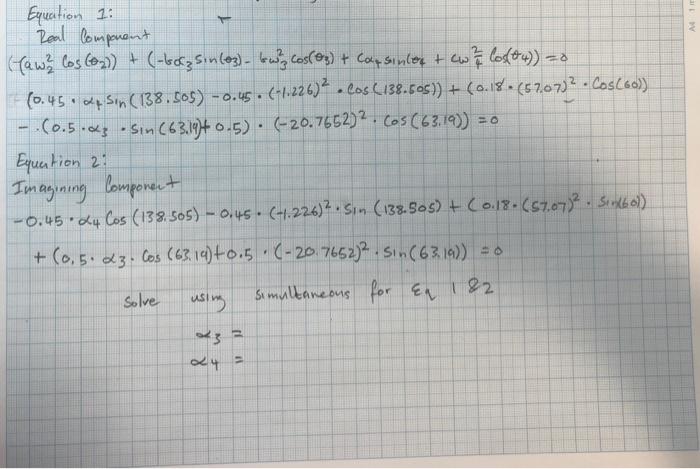 Equation 1:
Real Component
(-(aω₂² Cos(θ₂)) + (-bα₃ Sin(θ₃) - bω₃² Cos(θ₃) + Cα₄ Sin(θ₄ + Cω₄² Cos(θ₄)) = 0
(0.45 · α₄ Sin(138.505) - 0.45 · (-1.226)² · Cos(138.505)) + (0.18 · (57.07)² · Cos(60))
- ·(0.5 · α₃ · Sin(63.19)+ 0.5) · (-20.7652)² · Cos(63.19)) = 0
Equation 2:
Imagining Component
-0.45 · α₄ Cos(138.505) - 0.45 · (-1.226)² · Sin(138.505) + (0.18 · (57.07)² · Sin(60))
+ (0.5 · α₃ · Cos(63.19)+0.5 · (-20.7652)² · Sin(63.19)) = 0
Solve using Simultaneous for Eq 1 & 2
α₃ =
α₄ =